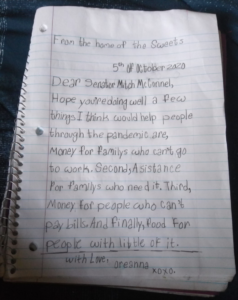 From the home of the Sweets
5th of October 2020
Dear Senator Mitch McConnel,
Hope you're doing well a few
things I think would help people
through the pandemic are,
Money for familys who can't go
to work. Second, Asistance
for familys who need it. Third,
Money for people who can't
pay bills. And finally, food for
people with little of it.
with Love,
xoxo.